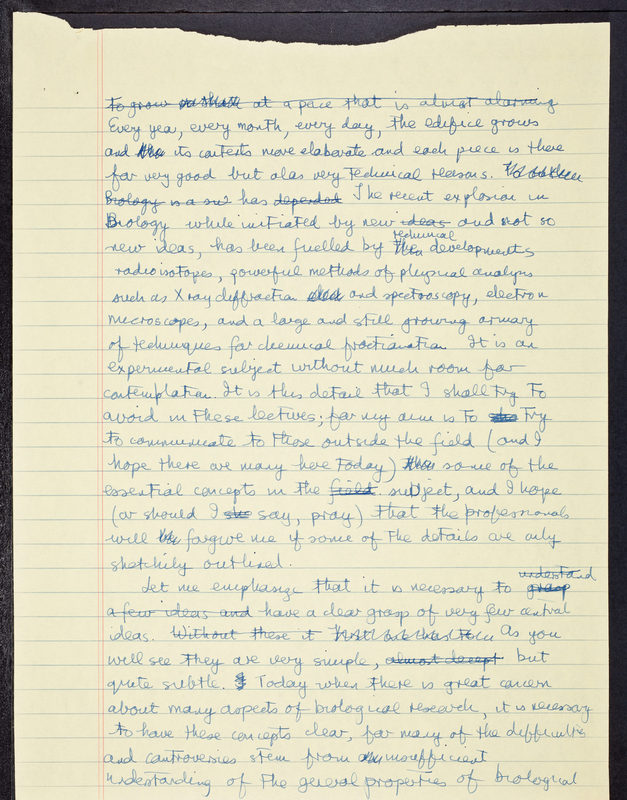 to grow at a pace that is almost alarming
Every year, every month, every day, the edifice grows
and its contents more elaborate and each piece is there
for very good but alas very technical reasons.
Biology is a has depended The recent explosion in
Biology while initiated by new ideas and not so
technical
new ideas, has been fuelled by the developments
radioisotopes, powerful methods of physical analysis
such as X ray diffraction and spectroscopy, electron
microscopes, and a large and still growing armary
of techniques for chemical fractionation It is an
experimental subject without much room for
contemplation. It is this detail that I shall try to
avoid in these lectures; for my aim is to try
to communicate to those outside the field (and I
hope there are many here today) some of the
essential concepts in the field subject, and I hope
(or should I say, pray) that the professionals
will forgive me if some of the details are only
sketchily outlined.
understand
Let me emphasize that it is necessary to grasp
a few ideas and have a clear grasp of very few central
ideas. Without these it As you
will see they are very simple, almost but
quite subtle. Today when there is great concern
about many aspects of biological research, it is necessary
to have these concepts clear, for many of the difficulties
and controversies stem from insufficient
understanding of the general properties of biological